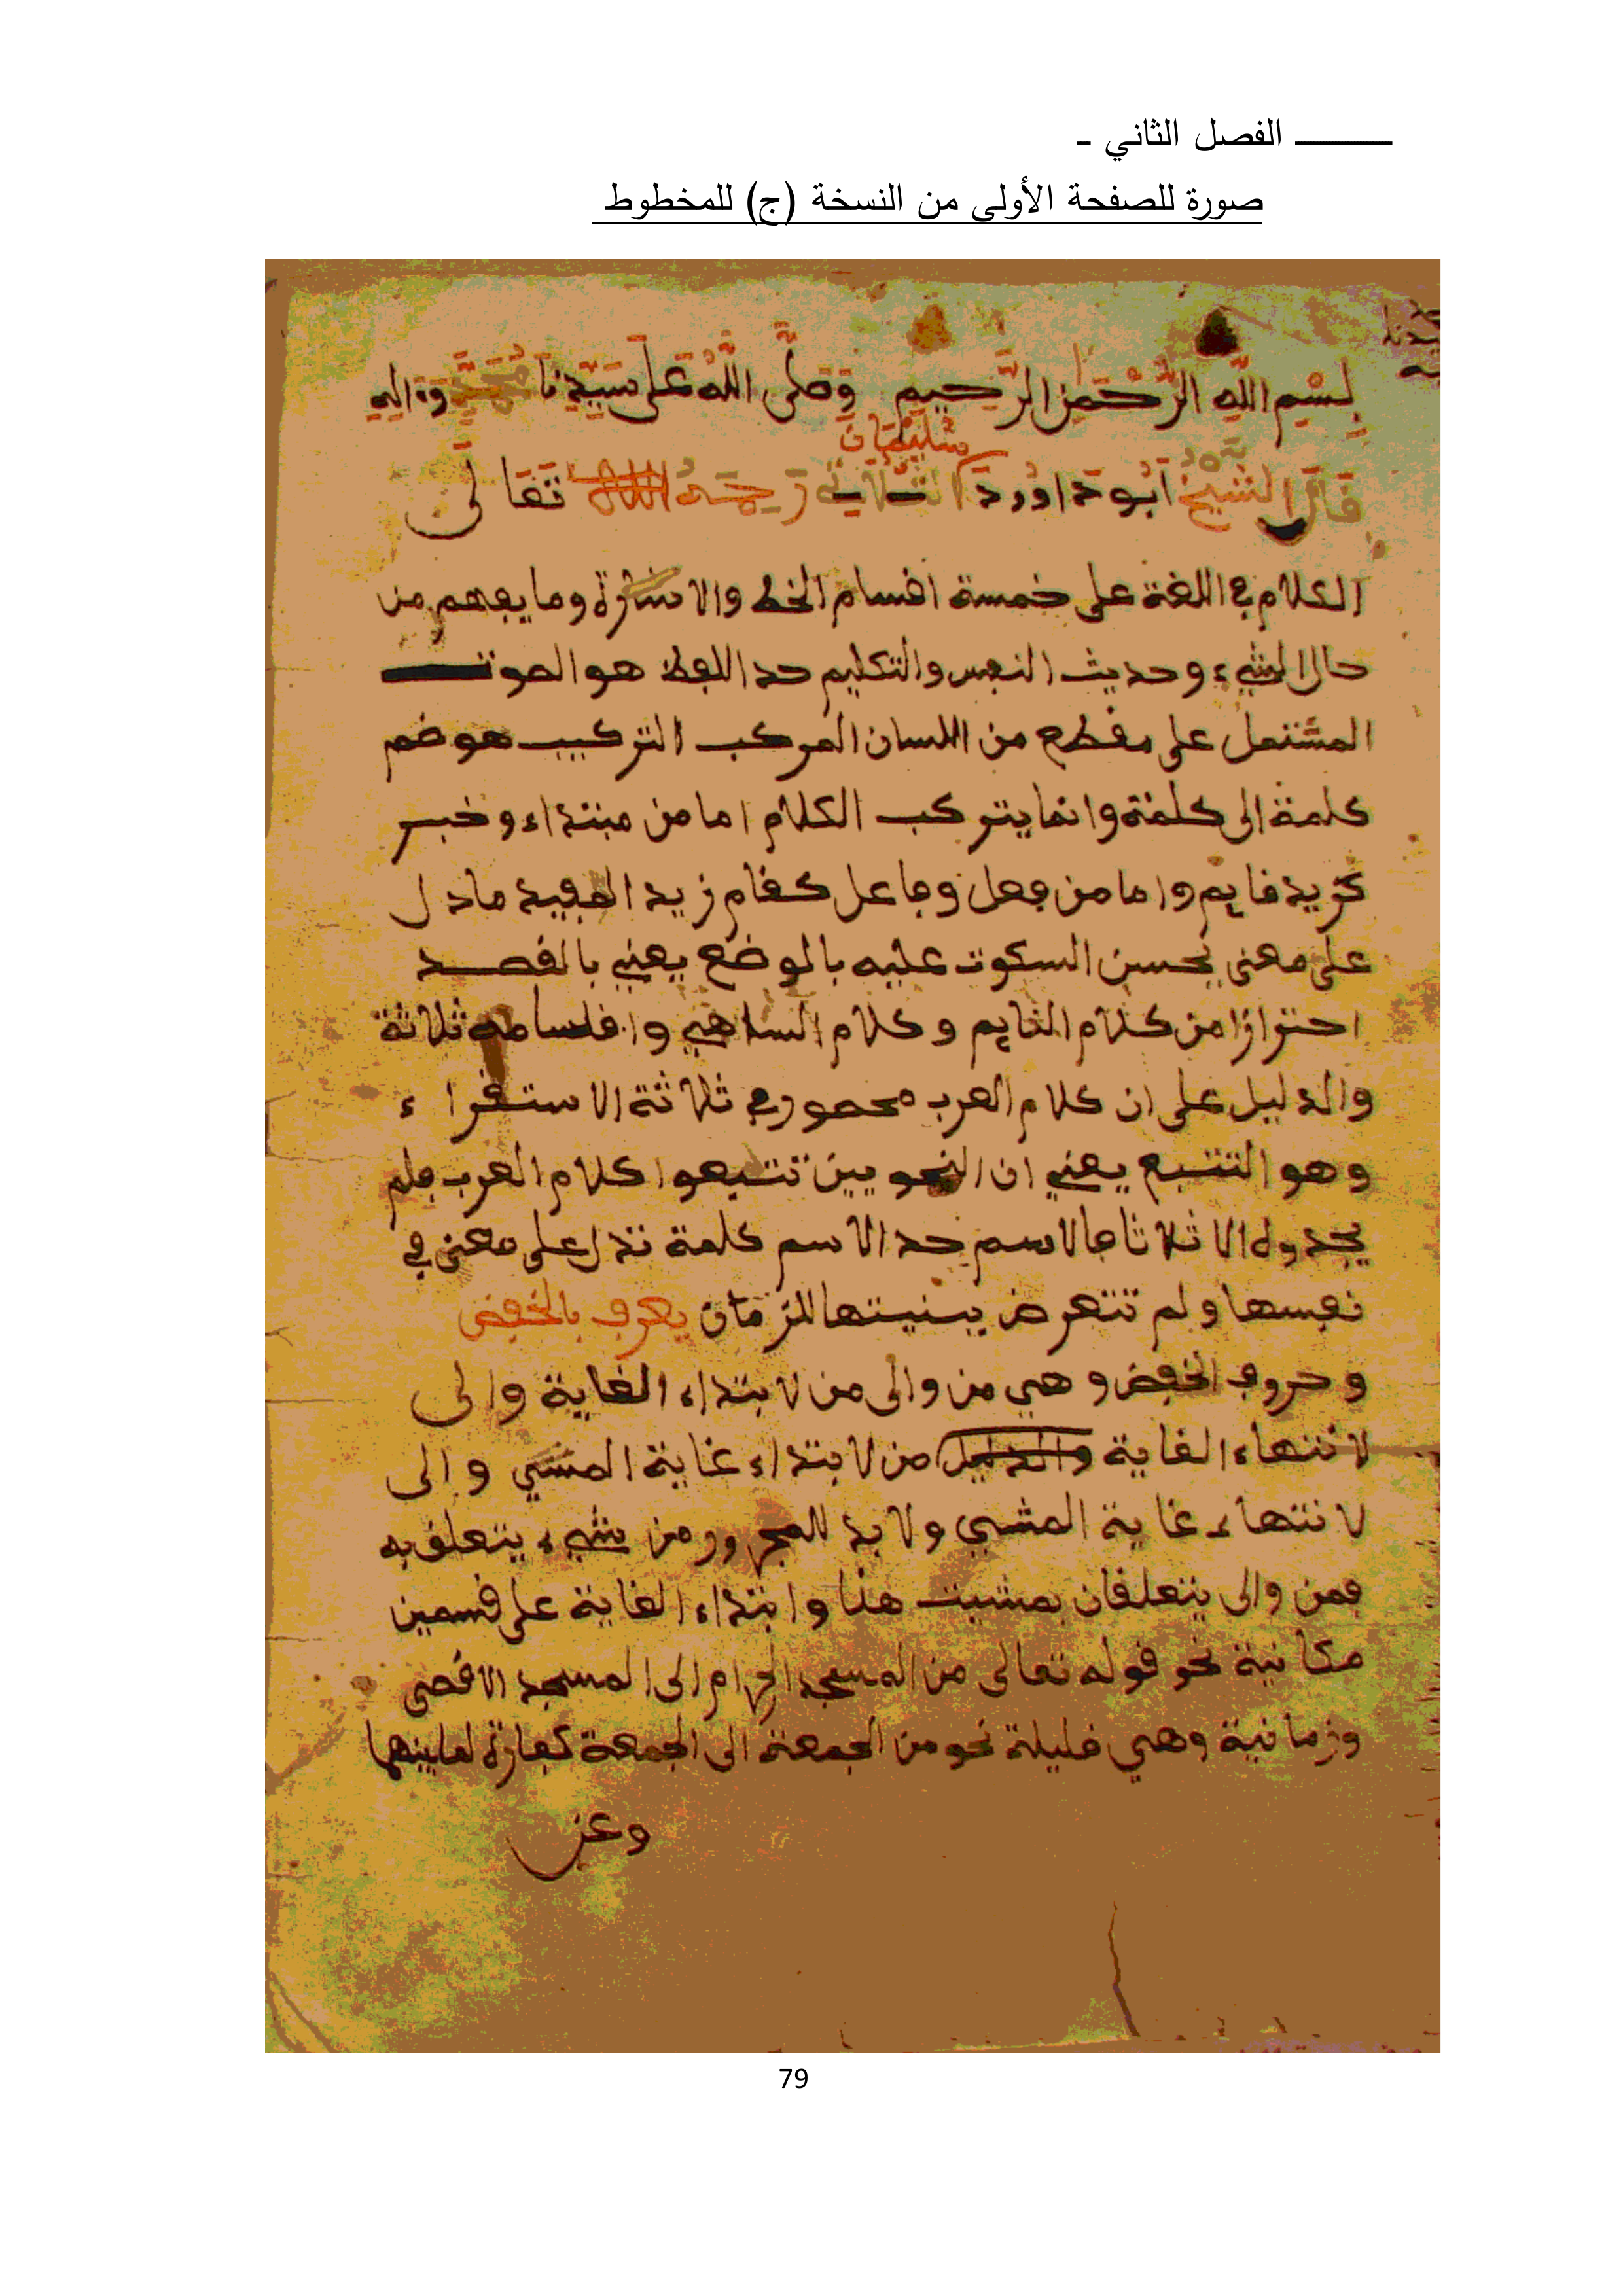 الفصل الثاني
صورة للصفحة الأولى من النسخة (ج) للمخطوط
بِسْمِ اللَّهِ الرَّحْمَنِ الرَّحِيمِ وَصَلَّى اللَّهُ عَلَى سَيِّدِنَا مُحَمَّدٍ وَءَالِهِ
سُلَيْمَانَ
قَالَ الشَّيْخُ أَبُو دَاوُودَ رَحِمَهُ اللَّهُ تَعَالَى
الكلام في اللغة على خمسة اقسام الخط والاشارة وما يفهم من
حال الشيء وحديث النفس والتكليم حد اللفظ هو الصوت
المشتمل على مقطع من اللسان المركب التركيب هو ضم
كلمة الى كلمة وانما يتركب الكلام اما من مبتداء وخبر
كزيد قايم واما من فعل وفاعل كقام زيد المفيد ما دل
على معنى يحسن السكوت عليه بالوضع يعني بالقصد
احترازا من كلام النايم وكلام الساهي واقسامه ثلاثة
والدليل على ان كلام العرب محصور في ثلاثة الاستقراء
وهو التتبع يعني ان النحويين تتبعوا كلام العرب فلم
يجدوه الا ثلاثا فالاسم حد الاسم كلمة تدل على معنى في
نفسها ولم تتعرض ببنيتها للزمان يعرف بالخفض
وحروف الخفض وهي من والى من لابتداء الغاية والى
لانتهاء الغاية من لابتداء غاية المشي والى
لانتهاء غاية المشي ولا بد للمجرور من شيء يتعلق به
فمن والى يتعلقان بمشيت هذا وابتداء الغاية على قسمين
مكانية نحو قوله تعالى من المسجد الحرام الى المسجد الاقصى
وزمانية وهي قليلة نحو من الجمعة الى الجمعة كفارة لما بينهما
وعن
79